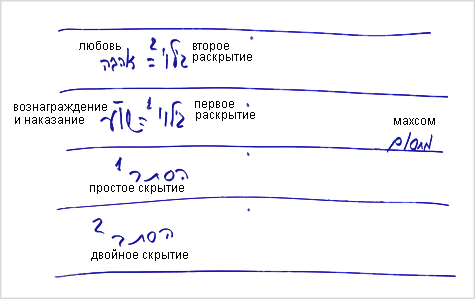 любовь второе
раскрытие
גילוי 2 = אהבה
вознаграждение
и наказание
первое
раскрытие
גילוי 1 = שו"ע
махсом
מחסום
הסתר 1
простое скрытие
הסתר 2
двойное скрытие